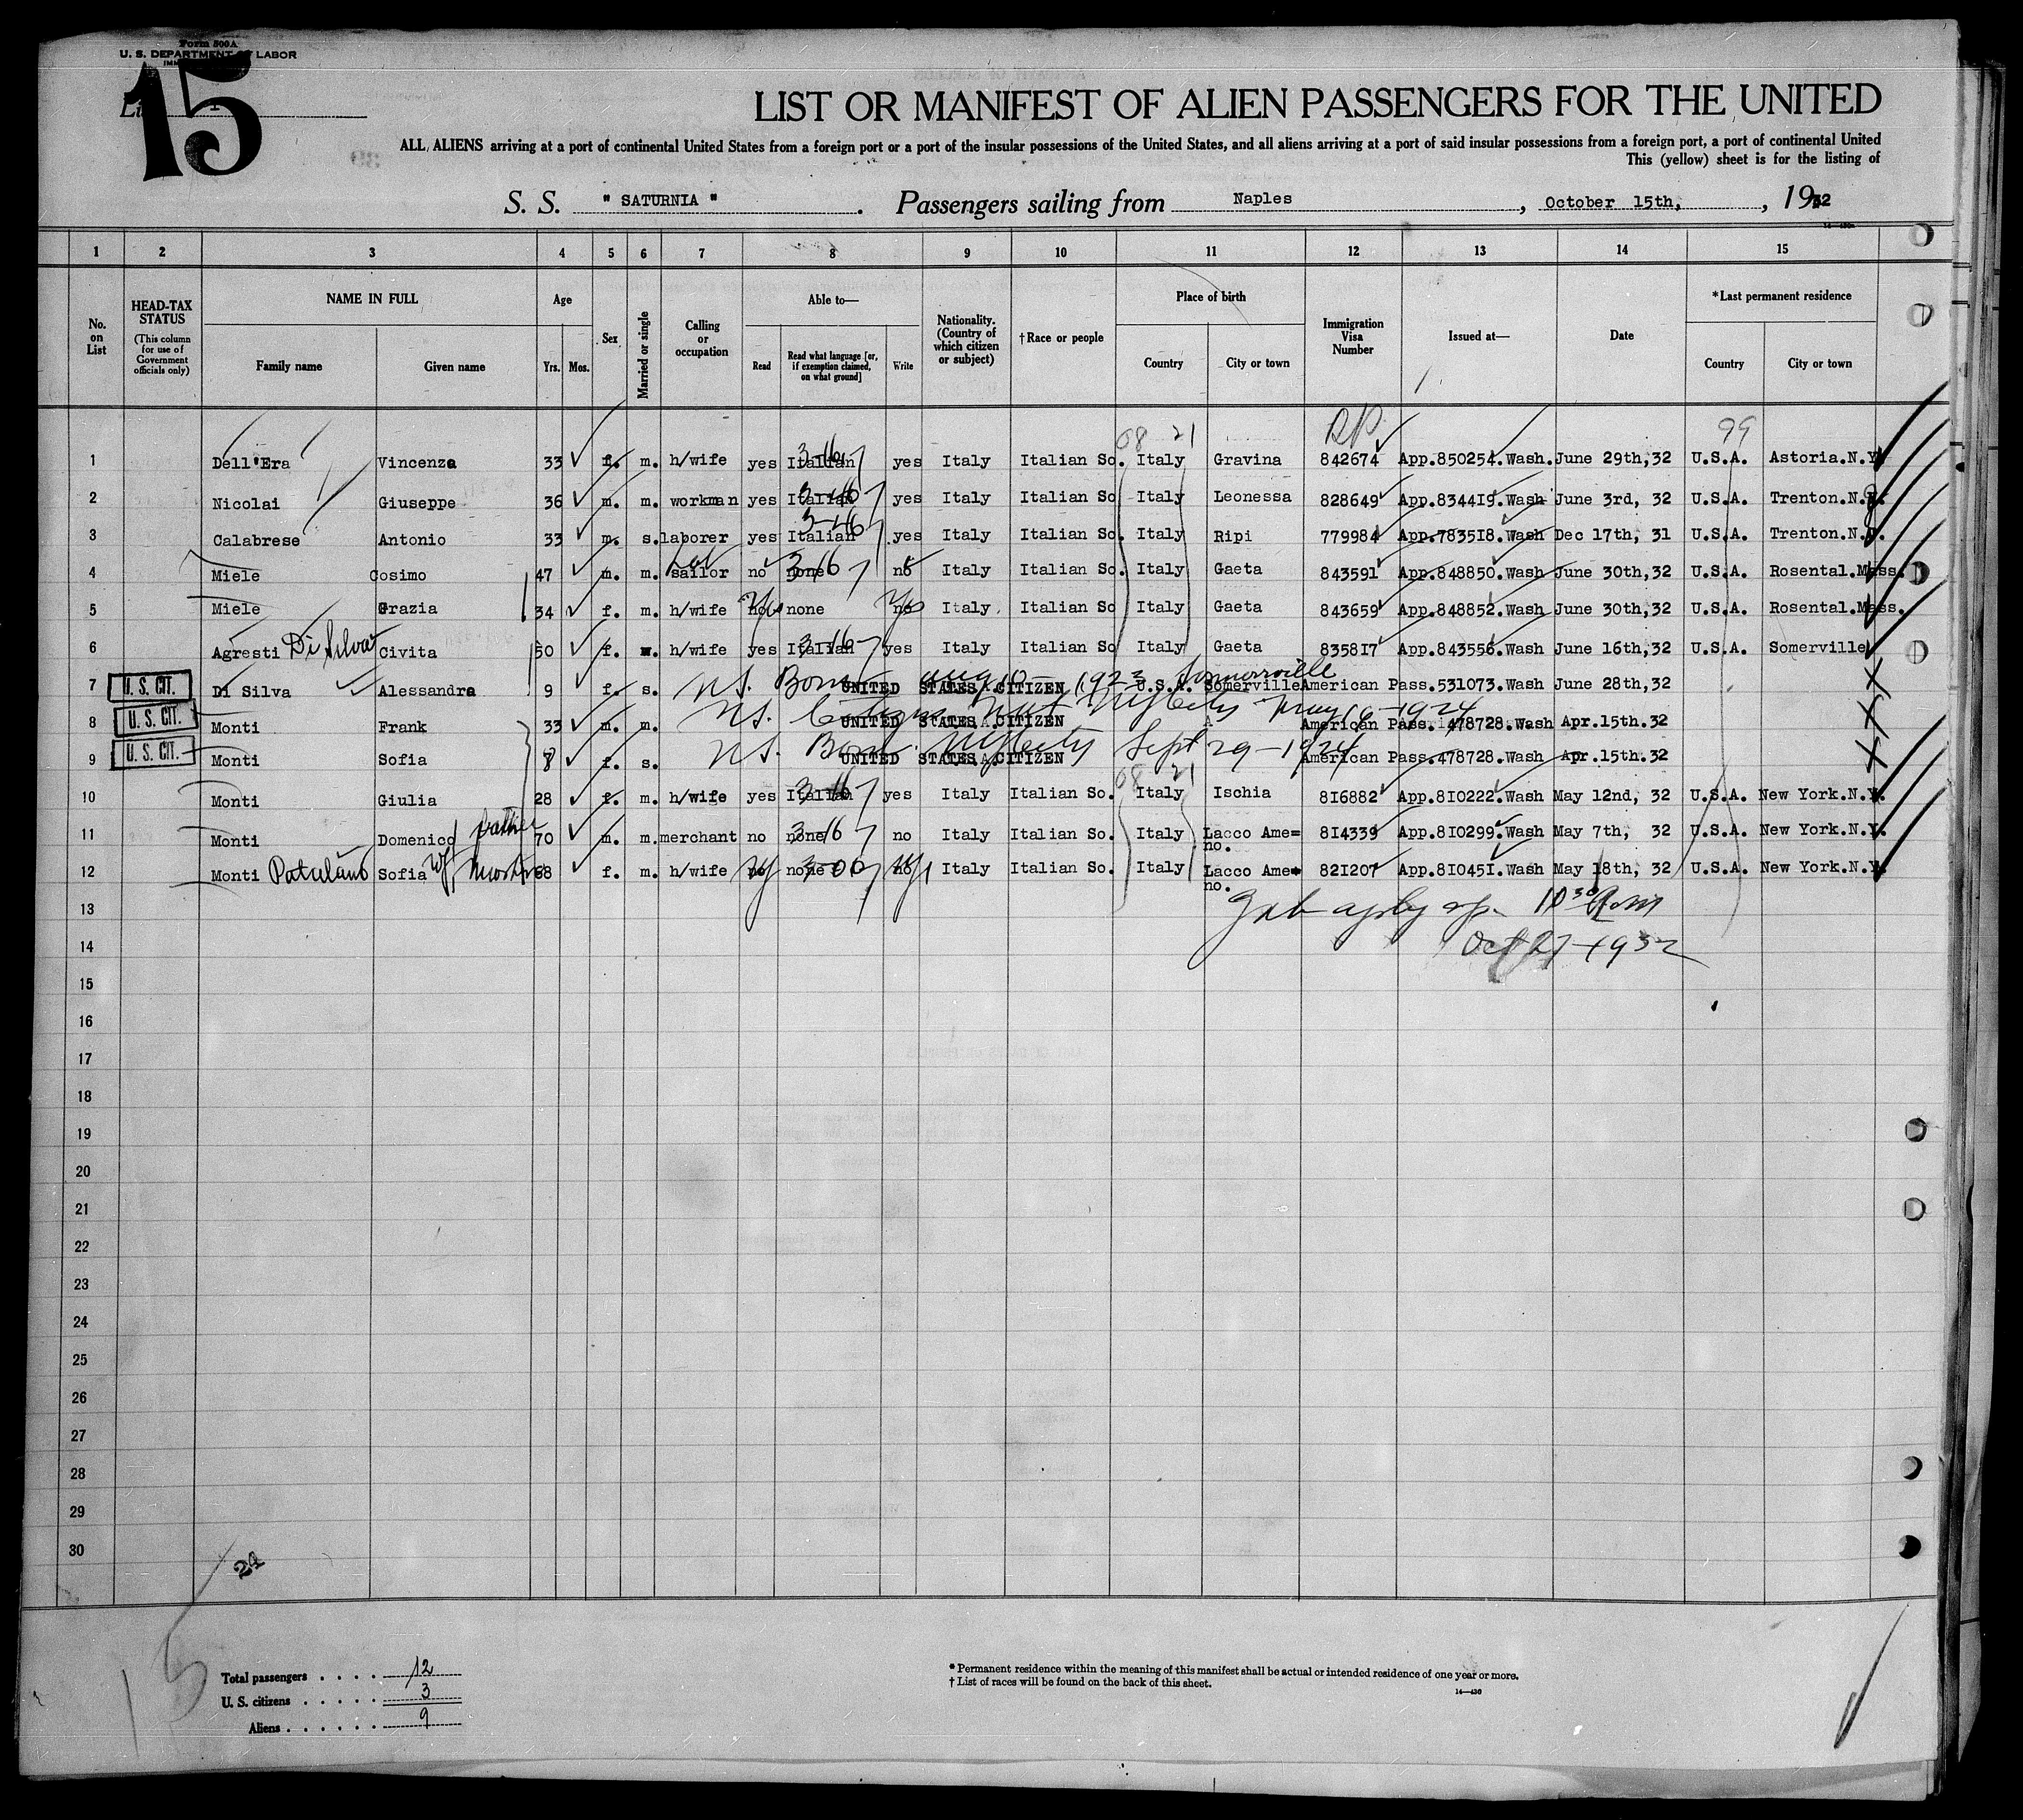 Form 500A
U. S. DEPARTMENT OF LABOR
15
LIST OR MANIFEST OF ALIEN PASSENGERS FOR THE UNITED
ALL ALIENS arriving at a port of continental United States from a foreign port or a port of the insular possessions of the United States, and all aliens arriving at a port of said insular possessions from a foreign port, a port of continental United
This (yellow) sheet is for the listing of
S. S. " SATURNIA ". Passengers sailing from Naples, October 15th, , 1932
1 2 3 4 5 6 7 8 9 10 11 12 13 14 15
No. on List
HEAD-TAX STATUS
(This column for use of Government officials only)
NAME IN FULL
Family name Given name
Age
Yrs. Mos.
Sex
Married or single
Calling or occupation
Able to—
Read
Read what language [or, if exemption claimed, on what ground]
Write
Nationality. (Country of which citizen or subject)
†Race or people
Place of birth
Country City or town
Immigration Visa Number
Issued at—
Date
*Last permanent residence
Country City or town
08 21 99
1 Dell'Era Vincenza 33 f. m. h/wife yes Italian 3-16 yes Italy Italian So. Italy Gravina 842674 App.850254.Wash. June 29th,32 U.S.A. Astoria.N.Y.
2 Nicolai Giuseppe 36 m. m. workman yes Italian 3-16 yes Italy Italian So Italy Leonessa 828649 App.834419.Wash June 3rd, 32 U.S.A. Trenton.N.J.
3 Calabrese Antonio 33 m. s. laborer yes Italian 3-16 yes Italy Italian So. Italy Ripi 779984 App.783518.Wash Dec 17th, 31 U.S.A. Trenton.N.J.
4 Miele Cosimo 47 m. m. sailor no none 3-16 no Italy Italian So. Italy Gaeta 843591 App.848850.Wash June 30th,32 U.S.A. Rosental.Mass.
5 Miele Grazia 34 f. m. h/wife no yes none no yes Italy Italian So Italy Gaeta 843659 App.848852.Wash June 30th,32 U.S.A. Rosental.Mass.
6 Agresti Di Silva Civita 50 f. h/wife yes Italian 3-16 yes Italy Italian So Italy Gaeta 835817 App.843556.Wash June 16th,32 U.S.A. Somerville
U.S. CIT. 7 Di Silva Alessandra 9 f. s. UNITED STATES CITIZEN U.S.A. Somerville American Pass.531073.Wash June 28th,32
Born Aug 10 - 1923 Somerville
U.S. CIT. 8 Monti Frank 33 m. m. UNITED STATES CITIZEN American Pass. 478728.Wash Apr.15th.32
May 16-1924
U.S. CIT. 9 Monti Sofia f. s. UNITED STATES CITIZEN American Pass.478728.Wash Apr.15th.32
Born Sept 29-1924
08 21
10 Monti Giulia 28 f. m. h/wife yes Italian 3-16 yes Italy Italian So. Italy Ischia 816882 App.810222.Wash May 12nd, 32 U.S.A. New York.N.Y.
11 Monti Domenico father 70 m. m. merchant no none 3-16 no Italy Italian So. Italy Lacco Ame=no. 814339 App.810299.Wash May 7th, 32 U.S.A. New York.N.Y.
12 Monti Patalano Sofia mother 68 f. m. h/wife no none 3-00 no Italy Italian So. Italy Lacco Ame=no. 821207 App.810451.Wash May 18th, 32 U.S.A. New York.N.Y.
13 10 30
14 Oct 27-1932
15
16
17
18
19
20
21
22
23
24
25
26
27
28
29
30
24
15
Total passengers . . . . 12
U. S. citizens . . . . . 3
Aliens . . . . . . 9
* Permanent residence within the meaning of this manifest shall be actual or intended residence of one year or more.
† List of races will be found on the back of this sheet.
14—430